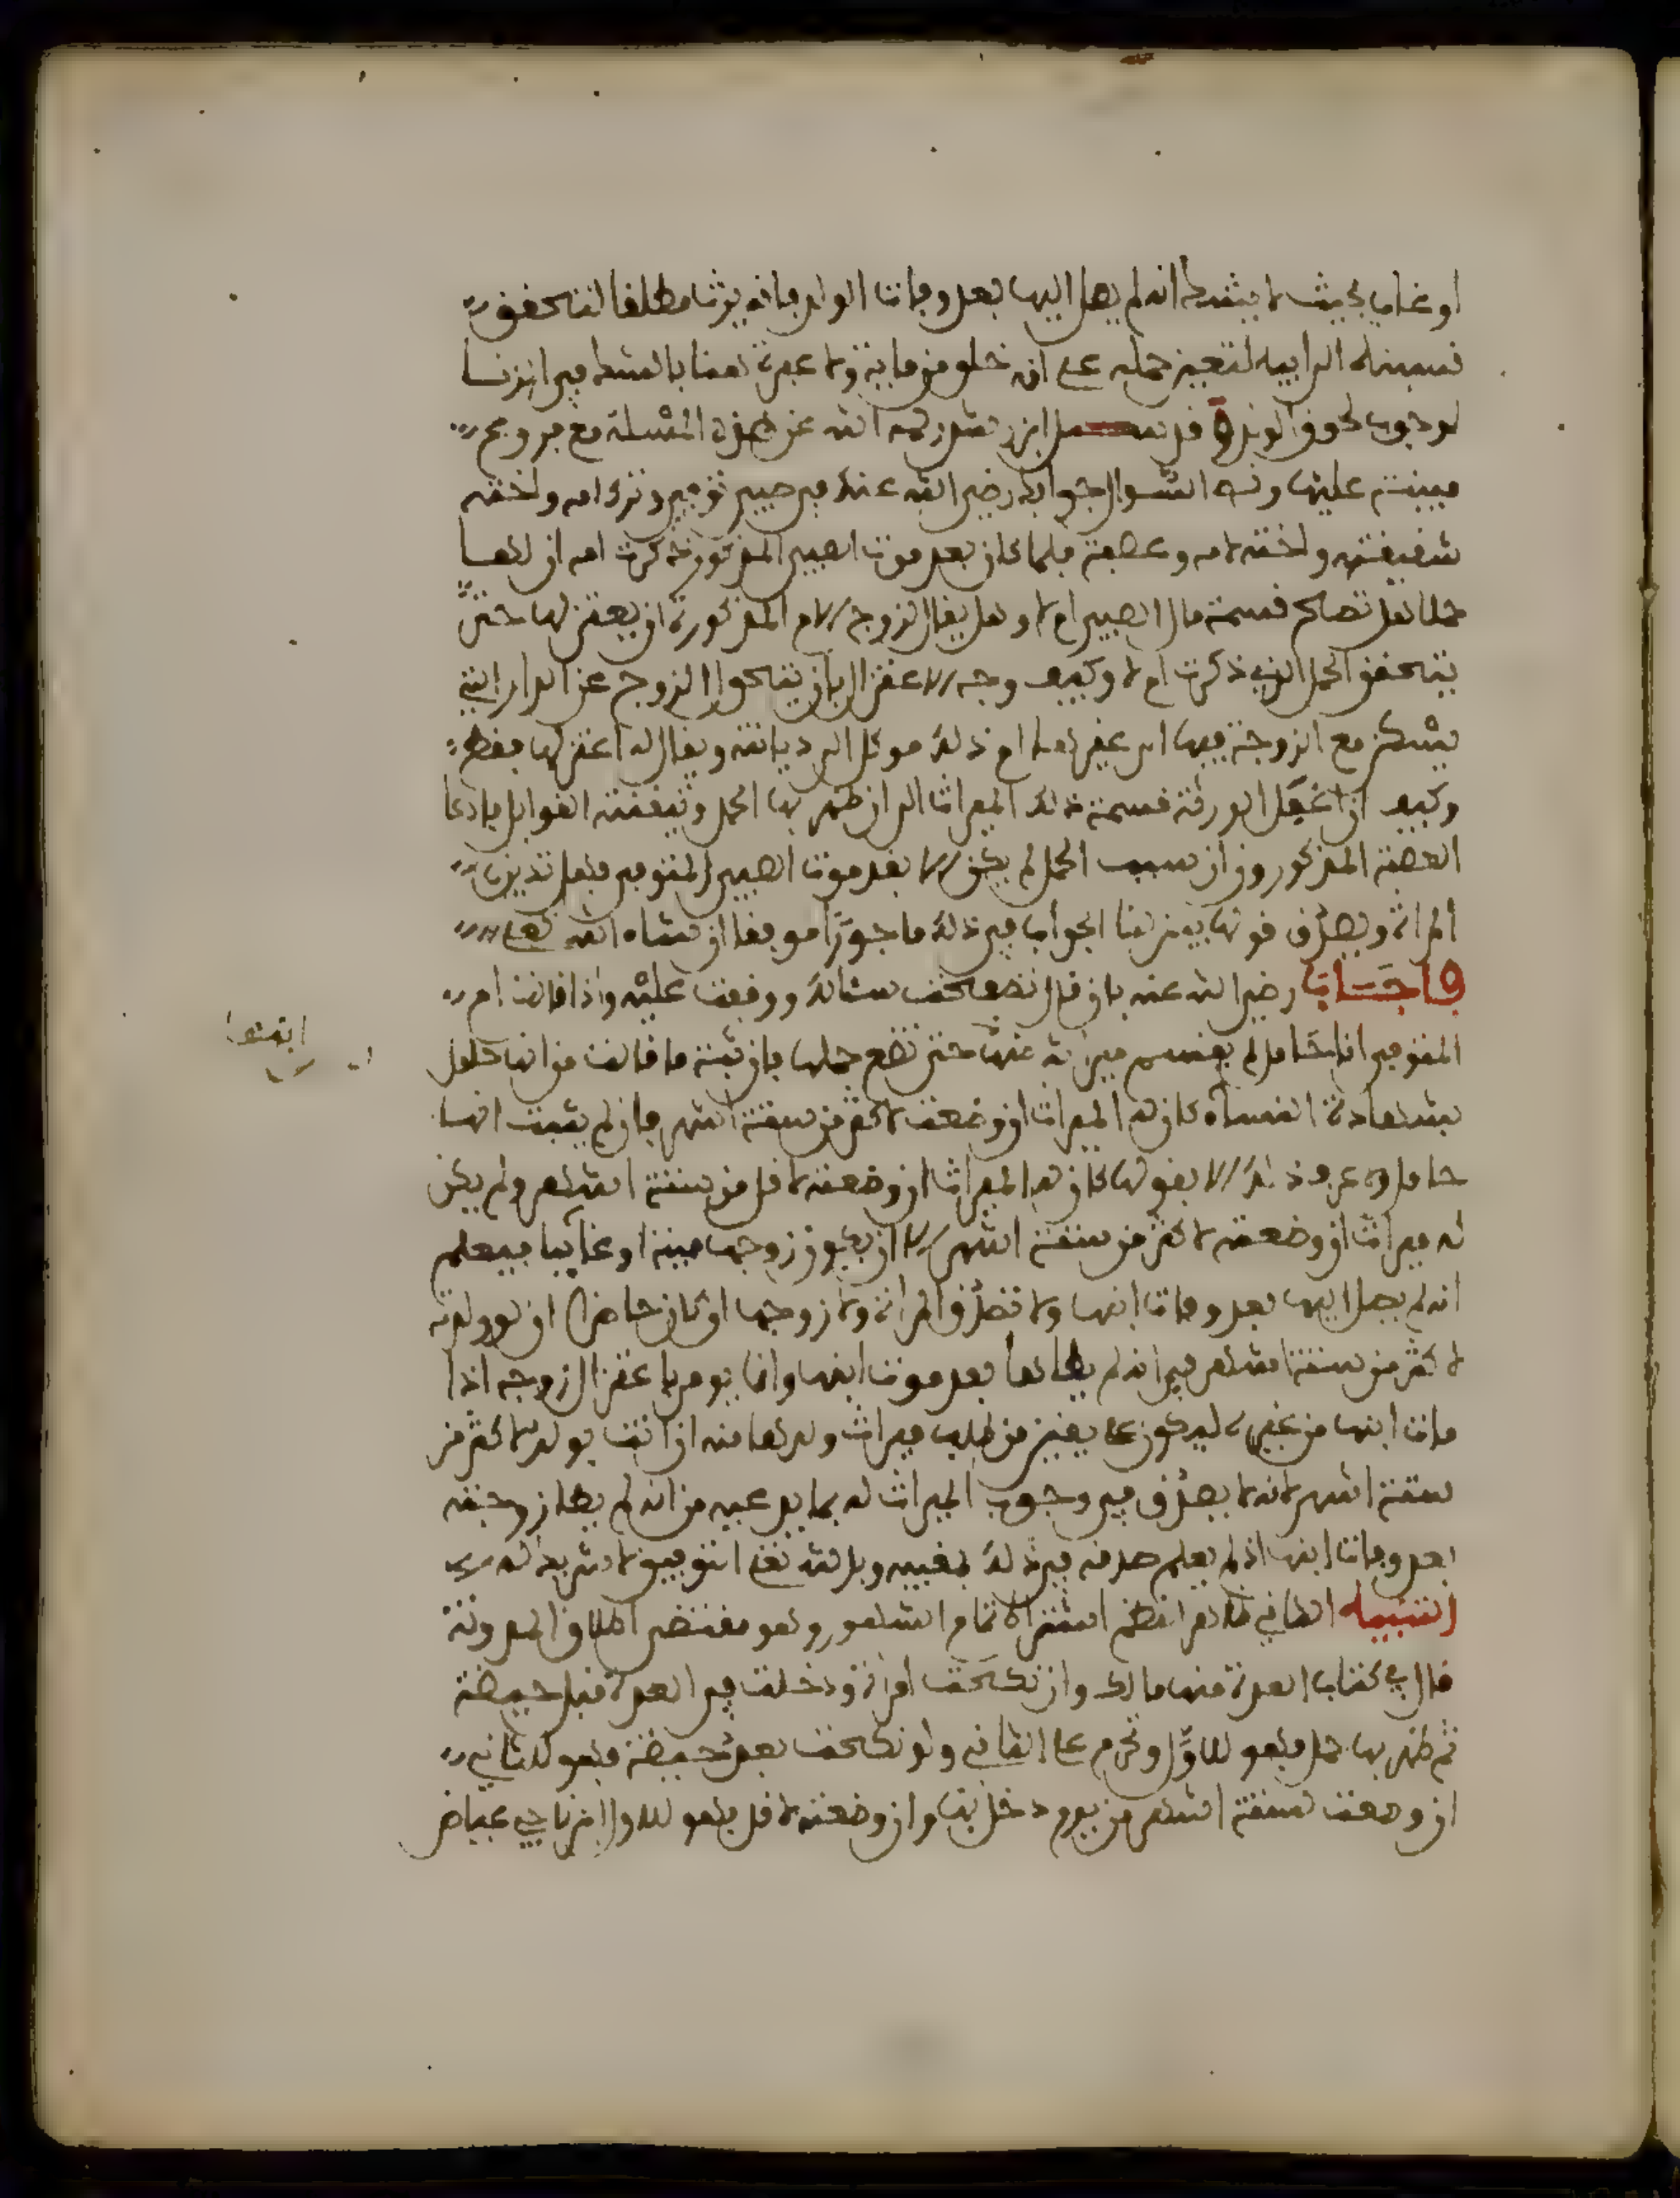 او غاب بحيث لا يشك انه لم يصل اليها بعد وفات الولد فانه يرث مطلقا لتحقق
نسبته الى ابيه لتعين حمله على انه خلو من مايه ولا عبرة هنا بالشك في الزنا
لوجوب لحوق الولد وقد سئل ابن رشد رحمه الله عن هذه المسئلة مع فروع
مبينة عليها ونص السؤال جوابك رضي الله عنك في صبي توفي وترك امه واخته
شقيقته واخته لامه وعصبة فلما كان بعد موت الصبي المذكور ذكرت امه ان لها
حملا هل تصلح قسمة مال الصبي ام لا وهل يقال لزوج الام المذكورة ان يعتزلها حتى
يتحقق الحمل الذي ذكرت ام لا وكيف وجه الاعتزال بان يتحول الزوج عن الدار التي
يسكن مع الزوجة فيها الى غيرها ام ذلك موكل الى ديانته ويقال له اعتزلها فقط
وكيف ان اغفل الورثة قسمة ذلك الميراث الى ان ظهر بها الحمل وتيقنته القوابل فادعا
العصبة المذكورون ان سبب الحمل لم يكن الا بعد موت الصبي المتوفى فهل تدين
المراة ويصدق قولها بين لنا الجواب في ذلك ماجورا موفقا ان شاء الله تعلى
فاجاب رضي الله عنه بان قال تصفحت سئالك ووقفت عليه واذا قالت ام
المتوفى انا حامل لم يقسم ميراثه عنها حتى تضع حملها فان ثبت ما قالت من انها حامل
بشهادة النساء كان له الميراث ان وضعت لاكثر من ستة اشهر فان لم يثبت انها
حامل ولا عرف ذلك الا بقولها كان له الميراث ان وضعته لاقل من ستة اشهر ولم يكن
له ميراث ان وضعته لاكثر من ستة اشهر الا ان يكون زوجها ميتا او غايبا فيعلم
انه لم يصل اليها بعد وفات ابنها ولا تصدق المراة ولا زوجها ان كان حاضرا ان لو ولدته
لاكثر من ستة اشهر في انه لم يطاها بعد موت ابنها وانما يومر باعتزال زوجه اذا
مات ابنها من غيره ليكون على يقين من طلب ميراث ولدها منه ان اتت بولد لاكثر من
ستة اشهر لانه لا يصدق في وجوب الميراث له بما يدعيه من انه لم يطا زوجته
بعد وفات ابنها اذ لم يعلم صدقه في ذلك لمغيبه وبالله تعلى التوفيق لا شريك له
التنبيه الثاني ظاهر النظم اشتراط تمام الشهور وهو مقتضى اطلاق المدونة
قال في كتاب العدة منها مالك وان نكحت امراة ودخلت في العدة قبل حيضة
ثم ظهر بها حمل فهو للاول وتحرم على الثاني ولو نكحت بعد حيضة فهو للثاني
ان وضعت لستة اشهر من يوم دخل بها وان وضعته لاقل فهو للاول ابن ناجي عياض